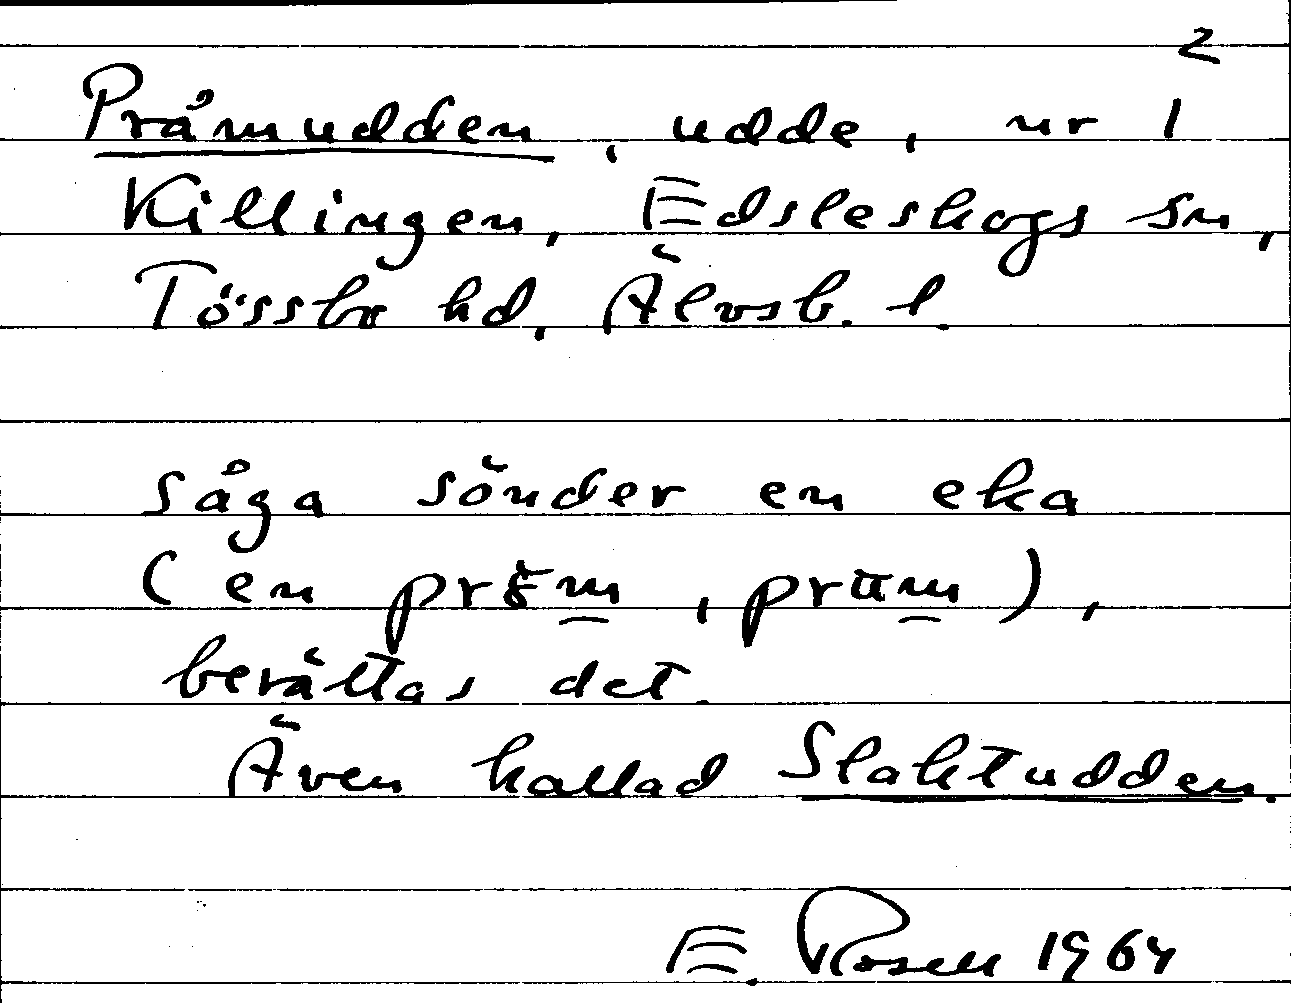 2
Pråmudden, udde, nr 1
Killingen, Edsleskogs sn,
Tössbo hd, Älvsb. l.
såga sönder en eka
(en pråm, pram),
berättas det.
Även kallad Slaktudden.
E. Rosell 1964